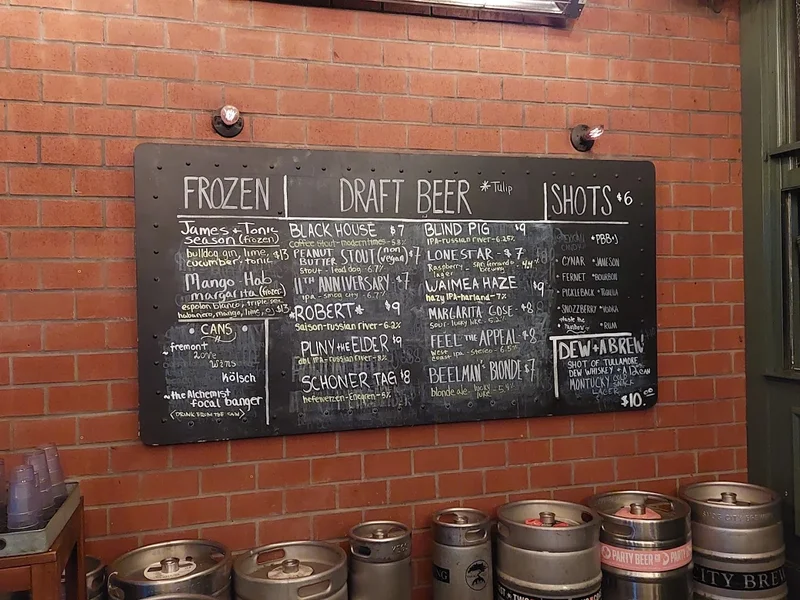 FROZEN
James + Tonic
season (frozen)
bulldog gin, lime, $13
cucumber, tonic
Mango-Hab
margarita (frozen)
espolon blanco, triple sec,
habanero, mango, lime, $13
CANS
fremont
kölsch
~the Alchemist
focal banger
(DRINK FROM THE CAN)
DRAFT BEER *Tulip
BLACK HOUSE $7
coffee stout - modern times - 5.8%
PEANUT BUTTER STOUT (non vegan) $7
Stout - lead dog - 6.7%
11TH ANNIVERSARY $7
ipa - smog city - 6.7%
*ROBERT* $9
saison-russian river - 6.2%
PLINY THE ELDER $9
dbl IPA - russian river - 8%
SCHONER TAG $8
hefeweizen - Enegren - 5%
BLIND PIG $9
IPA-russian river - 6.25%
LONE STAR - $7
Raspberry lager
WAIMEA HAZE $9
hazy IPA - harland - 7%
MARGARITA GOSE $8
FEEL THE APPEAL $8
west coast ipa
BEELMAN BLONDE $7
blonde ale - lucky luke - 5.4%
SHOTS $6
PBB+J
CYNAR JAMESON
FERNET BOURBON
PICKLEBACK TEQUILA
SNOZZBERRY VODKA
RUM
DEW + A BREW
SHOT OF TULLAMORE
DEW WHISKEY + A 12oz CAN
MONTUCKY COLD SNACK
LAGER
$10.00
PARTY BEER CO
PARTY
CITY BREW